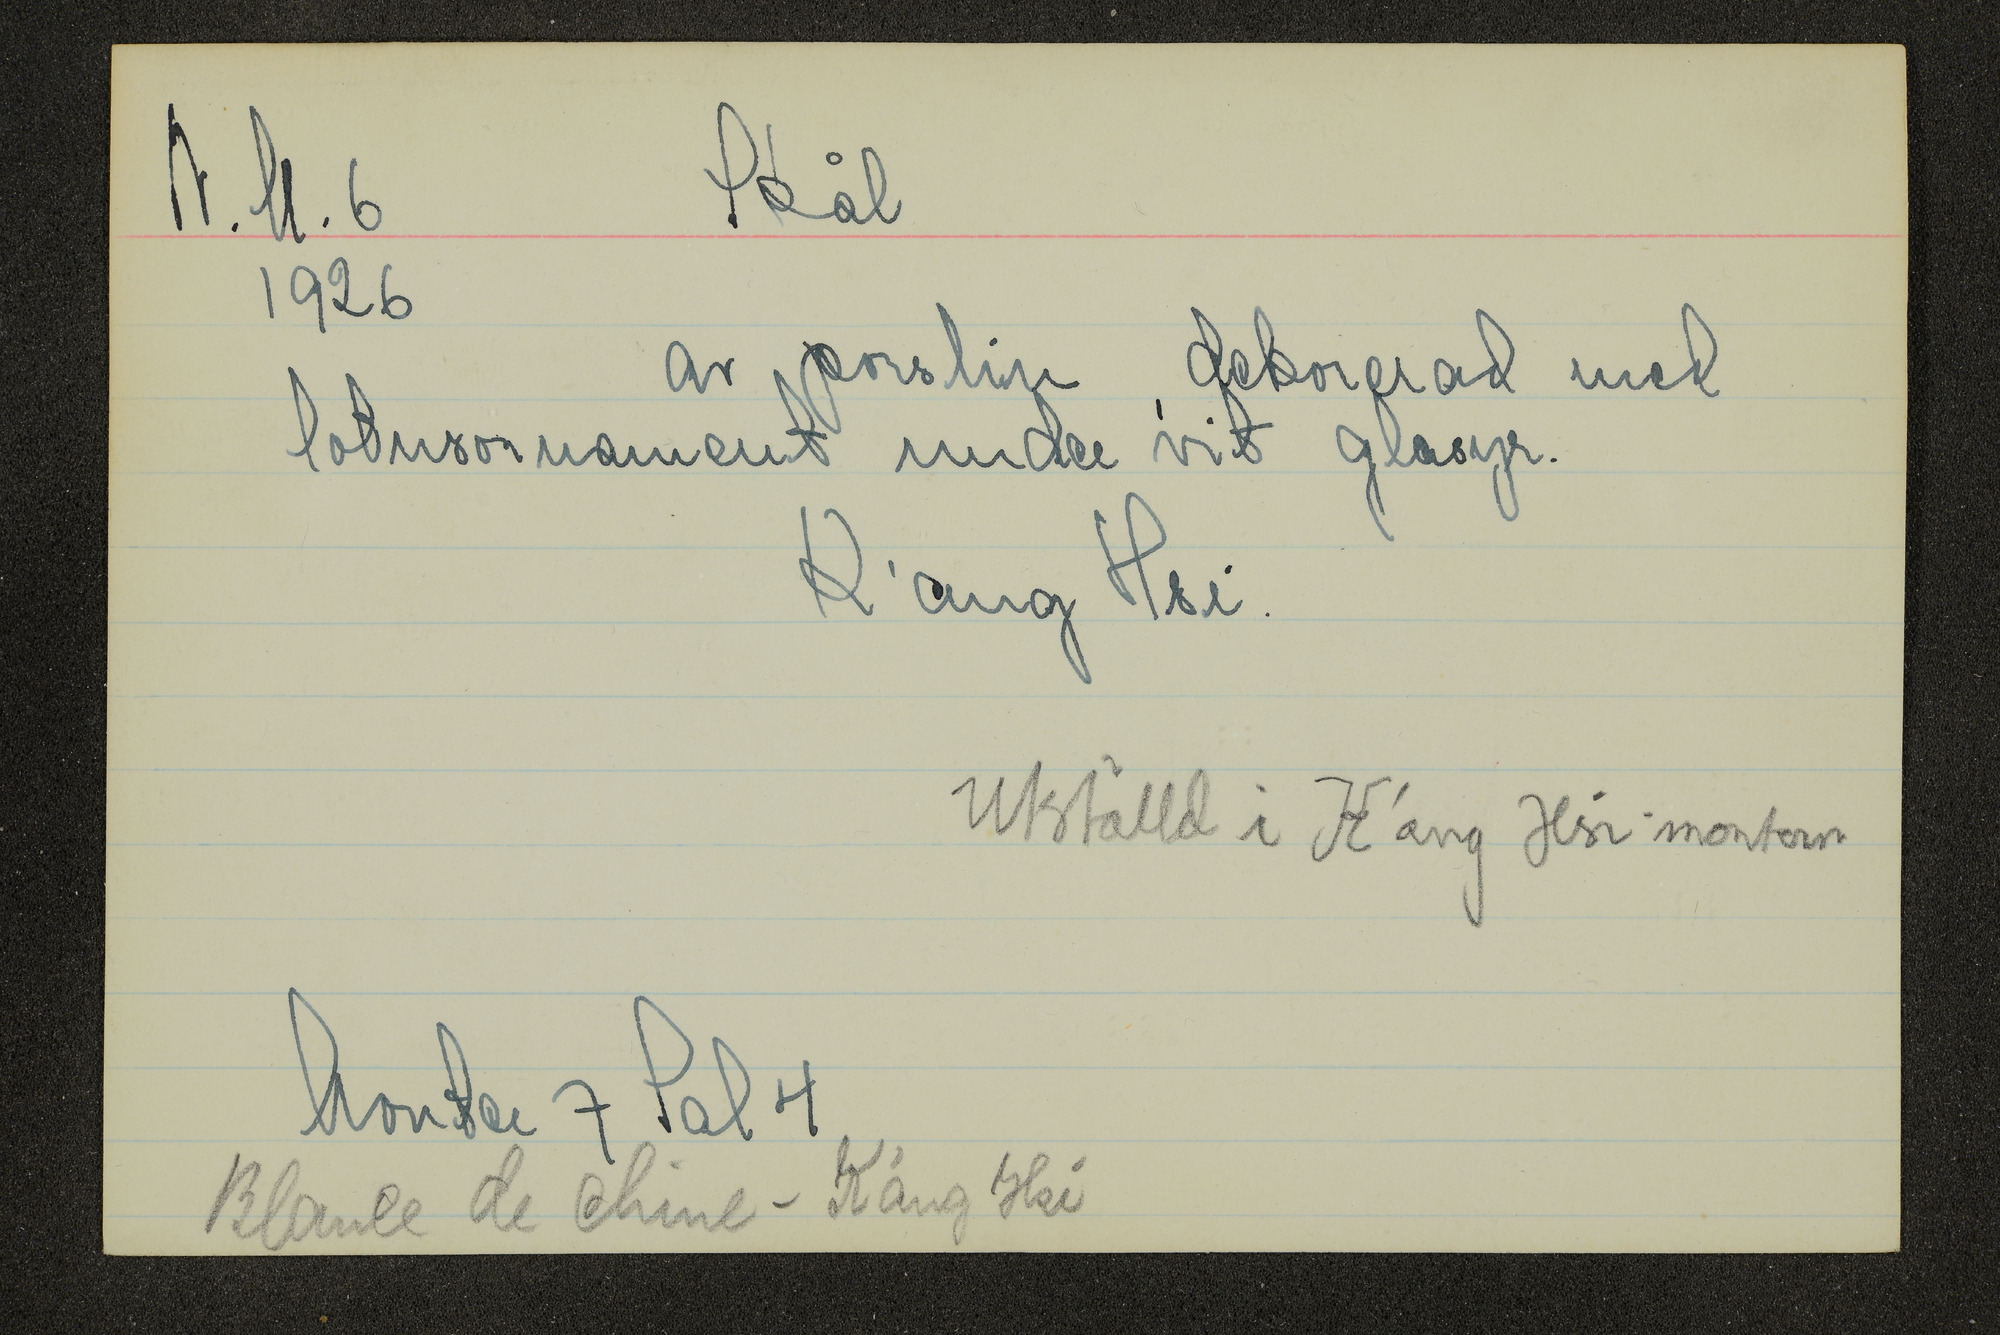 N.M.6 Skål
1926
av porslin, dekorerad med
lotusornament under vit glasyr.
K'ang Hsi.
Utställd i K'ang Hsi-montern
Monter 7 Sal 4
Blanc de chine - K'ang Hsi